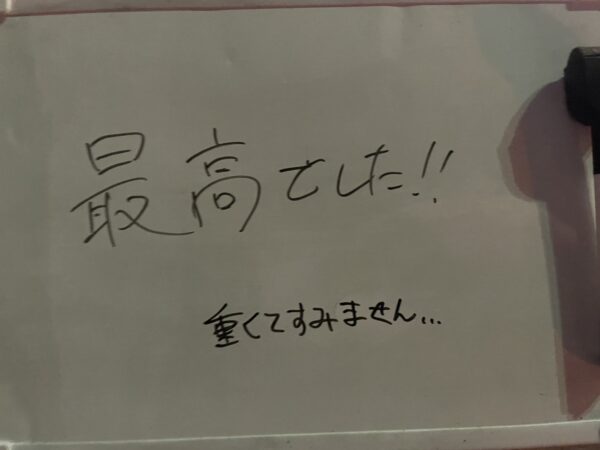 最高でした!!
重くてすみません...